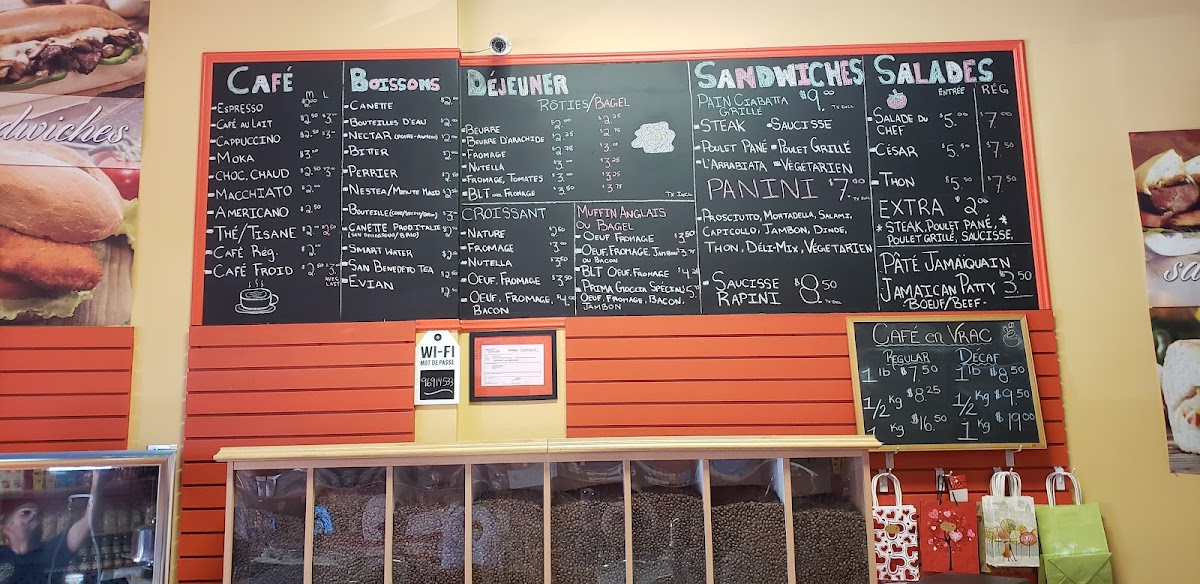 ndwiches
CAFÉ
M L
ESPRESSO $2.00
CAFÉ AU LAIT $2.50 $3.
CAPPUCCINO $2.50 $3.
MOKA $3.00
CHOC. CHAUD $2.50 $3.
MACCHIATO $2.
AMERICANO $2.50
THÉ/TISANE $2. $2.50
CAFÉ REG. $2.
CAFÉ FROID
AVEC LAIT
BOISSONS
CANETTE $2.00
BOUTEILLES D'EAU $2.
NECTAR
BITTER $2.00
PERRIER
NESTEA/MINUTE MAID
BOUTEILLE $3.
CANETTE PROD. ITALIE
SMART WATER
SAN BENEDETO TEA
EVIAN
DÉJEUNER
RÔTIES/BAGEL
BEURRE $2.00 $2.25
BEURRE D'ARACHIDE
FROMAGE
NUTELLA $3.00 $3.25
FROMAGE, TOMATES $3. $3.50
BLT AVEC FROMAGE $3.50 $3.75
TX INCL
CROISSANT
NATURE $2.50
FROMAGE $3.00
NUTELLA $3.50
OEUF, FROMAGE $3.50
OEUF, FROMAGE, $4.00
BACON
MUFFIN ANGLAIS
OU BAGEL
OEUF FROMAGE $3.50
OEUF, FROMAGE, JAMBON $3.75
OU BACON
BLT OEUF, FROMAGE $4.25
PRIMA GIOCCIA SPÉCIAL
OEUF, FROMAGE, BACON,
JAMBON
SANDWICHES
PAIN CIABATTA $9.00
GRILLÉ TX INCL
STEAK SAUCISSE
POULET PANÉ POULET GRILLÉ
L'ARRABIATA VÉGÉTARIEN
PANINI $7.00
TX INCL
PROSCIUTO, MORTADELLA, SALAMI,
CAPICOLLO, JAMBON, DINDE,
THON, DÉLI-MIX, VÉGÉTARIEN
SAUCISSE $8.50
RAPINI TX INCL
SALADES
ENTRÉE RÉG
SALADE DU $5.00 $7.00
CHEF
CÉSAR $5.50 $7.50
THON $5.50 $7.50
EXTRA $2.00
* STEAK, POULET PANÉ, *
POULET GRILLÉ, SAUCISSE.
PÂTÉ JAMAÏQUAIN
JAMAICAN PATTY 3.50
-BOEUF/BEEF-
WI-FI
MOT DE PASSE
96914533
CAFÉ EN VRAC
REGULAR DÉCAF
1 lb $7.50 1 lb $8.50
1/2 Kg $8.25 1/2 Kg $9.50
1 Kg $16.50 1 Kg $19.00
sa